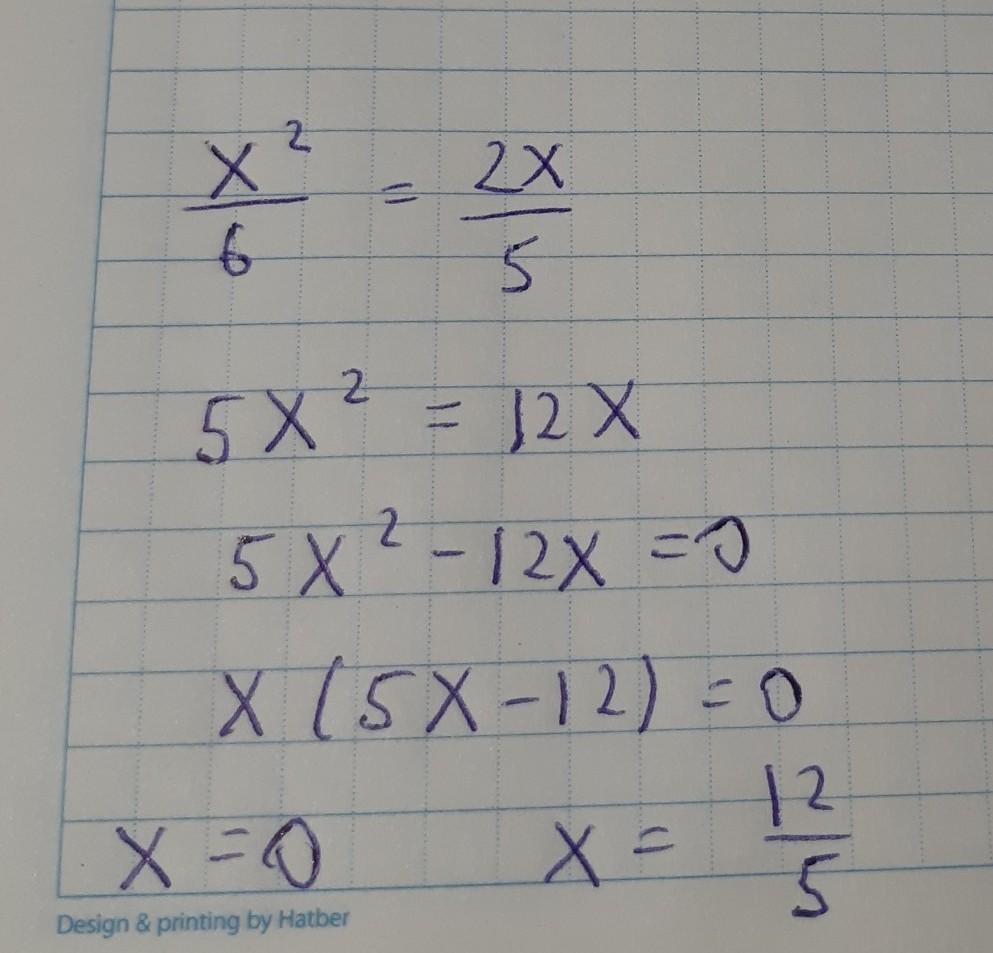 x²/6 = 2x/5
5x² = 12x
5x² - 12x = 0
x (5x - 12) = 0
x = 0 x = 12/5
Design & printing by Hatber